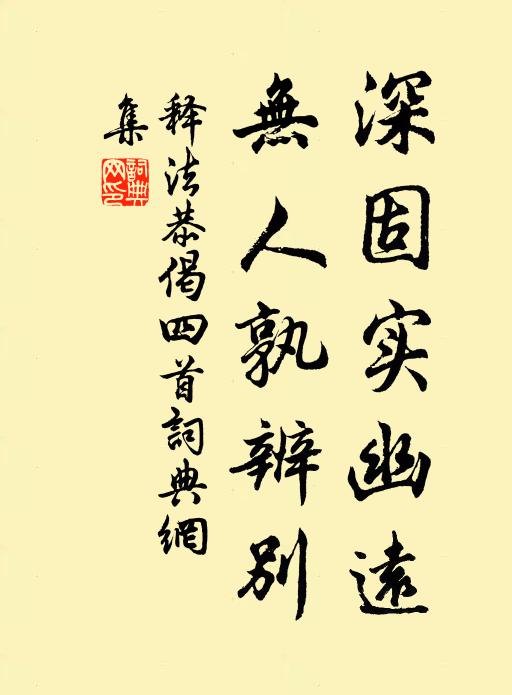 深固实幽遠
無人孰辨别
释法恭偈四首詞典網
集
詞典
网印